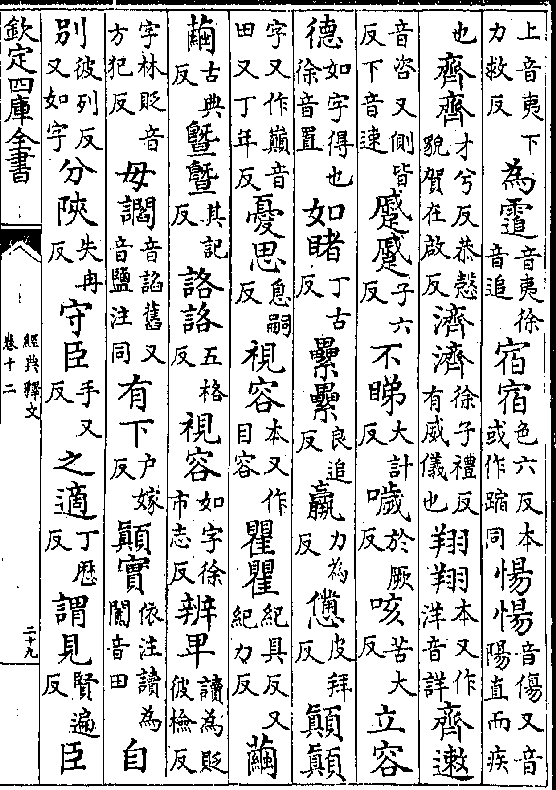 上音夷下力救反為音夷徐音追宿宿色六反本或作蹜同惕惕音傷又音陽直而疾
也齊齊才兮反恭慤貌賀在啟反濟濟徐子禮反有威儀也翔翔本又作洋音詳齊遬
音咨又側皆反下音速蹙蹙子六反不睇大計反噦於厥反咳苦大反立容
德如字得也徐音置如睹丁古反纍纍良追反羸力為反憊皮拜反顚顚
字又作巔音田又丁年反憂思息嗣反視容本又作目容瞿瞿紀具反又紀力反繭
繭古典反曁曁其記反詻詻五格反視容如字徐市志反辨卑讀為貶彼檢反
字林貶音方犯反毋讇音諂舊又音鹽注同有下户嫁反顚實依注讀為闐音田自
別彼列反又如字分陜失冉反守臣手又反之適丁歴反謂見賢遍反臣
欽定四庫全書
經典釋文
卷十二
二十九